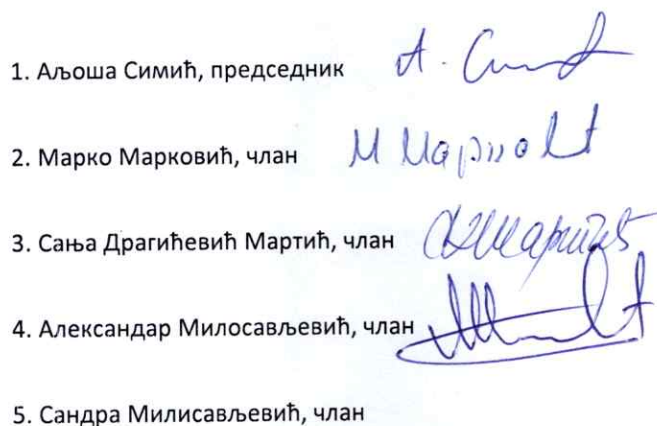 1. Аљоша Симић, председник
2. Марко Марковић, члан
3. Сања Драгићевић Мартић, члан
4. Александар Милосављевић, члан
5. Сандра Милисављевић, члан